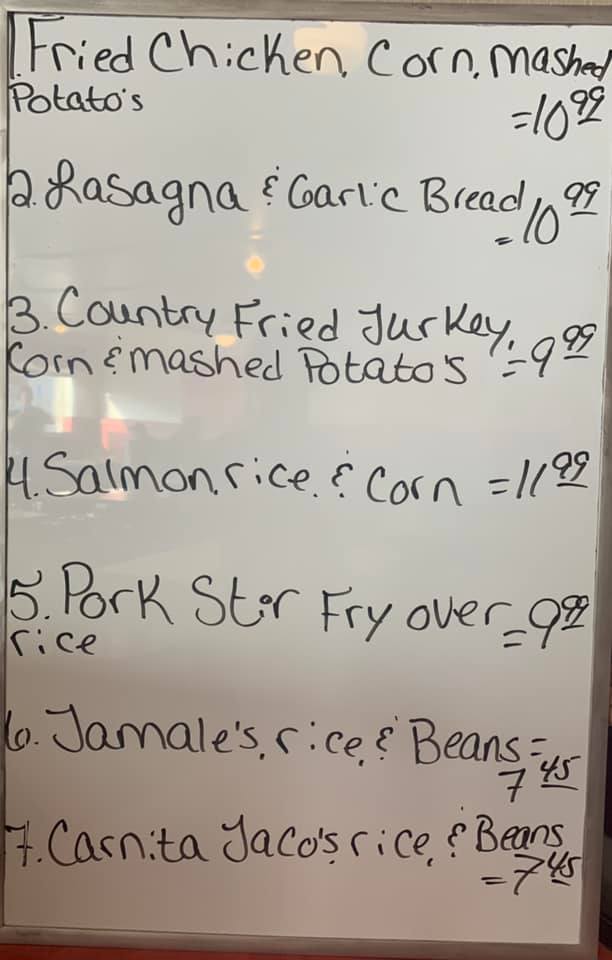 1. Fried Chicken, Corn, mashed
Potato's
=10 99
2. Lasagna & Garlic Bread
=10 99
3. Country Fried Turkey,
Corn & mashed Potato's =9 99
4. Salmon, rice, & Corn =11 99
5. Pork Stir Fry over =9 99
rice
6. Tamale's, rice, & Beans =
7 45
7. Carnita Taco's, rice, & Beans
=7 45